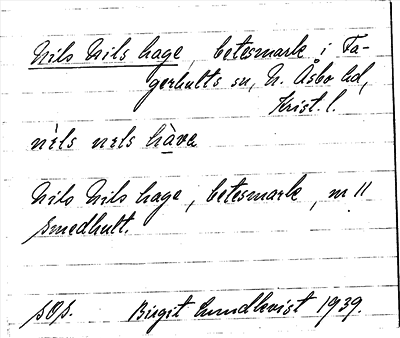 Nils Nils hage, betesmark i Fa-
gerhults sn, N. Åsbo hd,
Krist. l.
nì̀ls nɛls hàva
Nils Nils hage, betesmark, nr 11
Smedhult.
SOS. Birgit Lundkvist 1939.